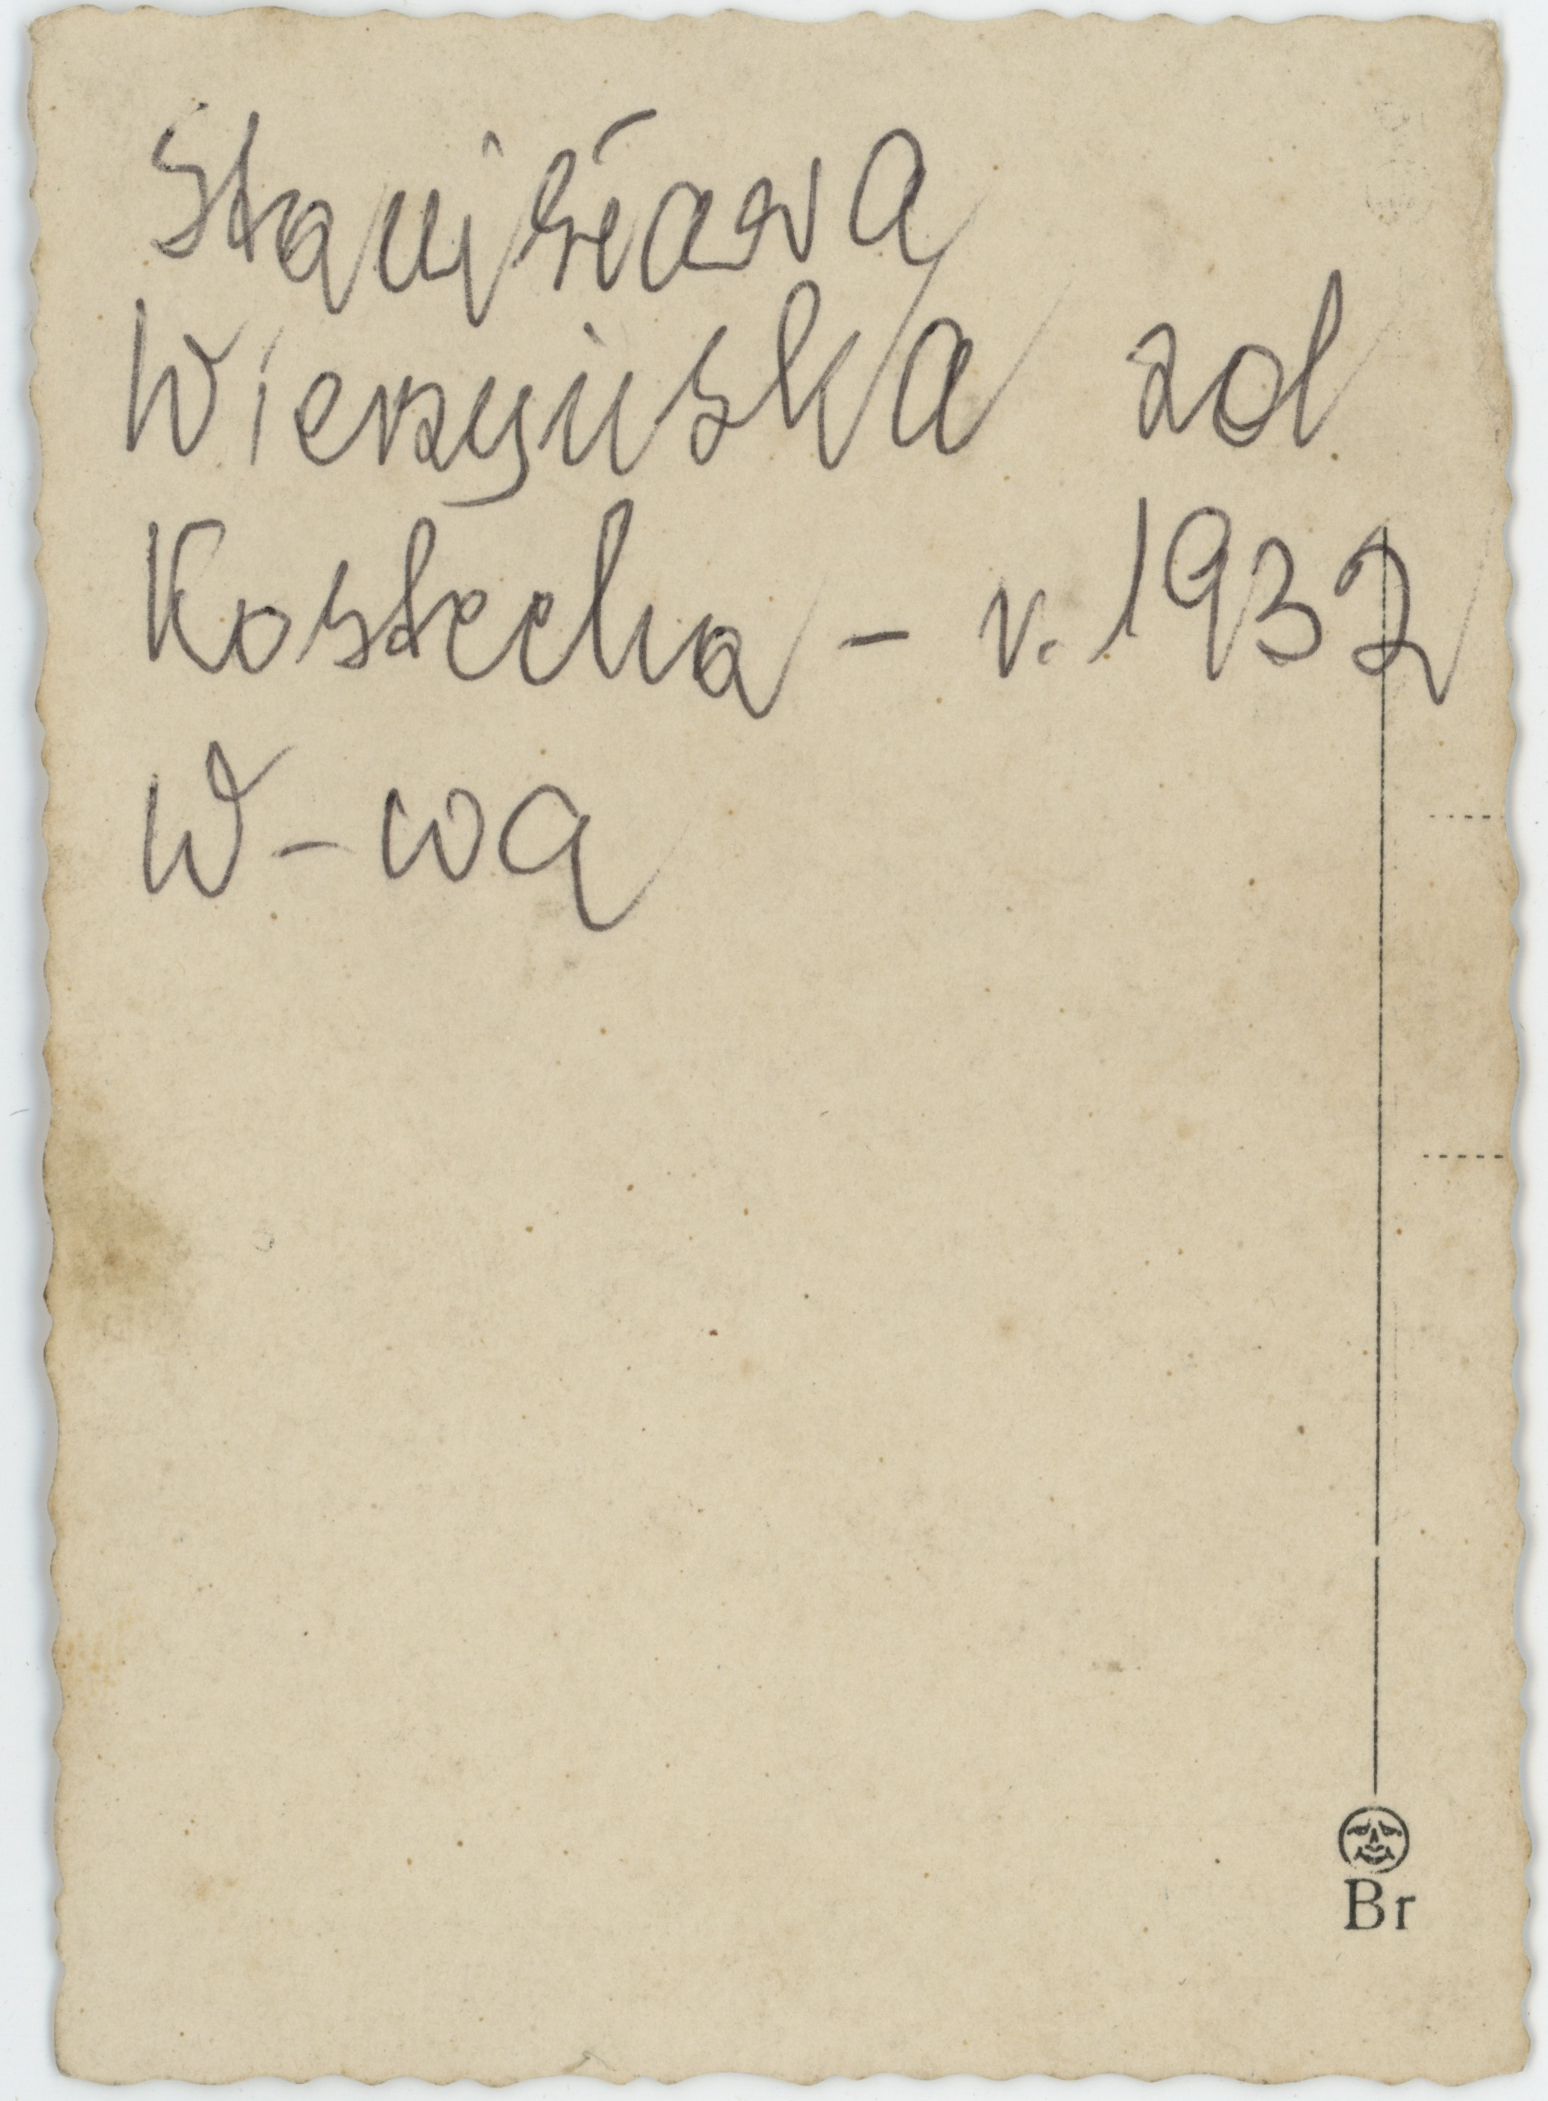 Stanisława
Wierzyńska zd
Kostecka - r. 1932
W-wa
Br